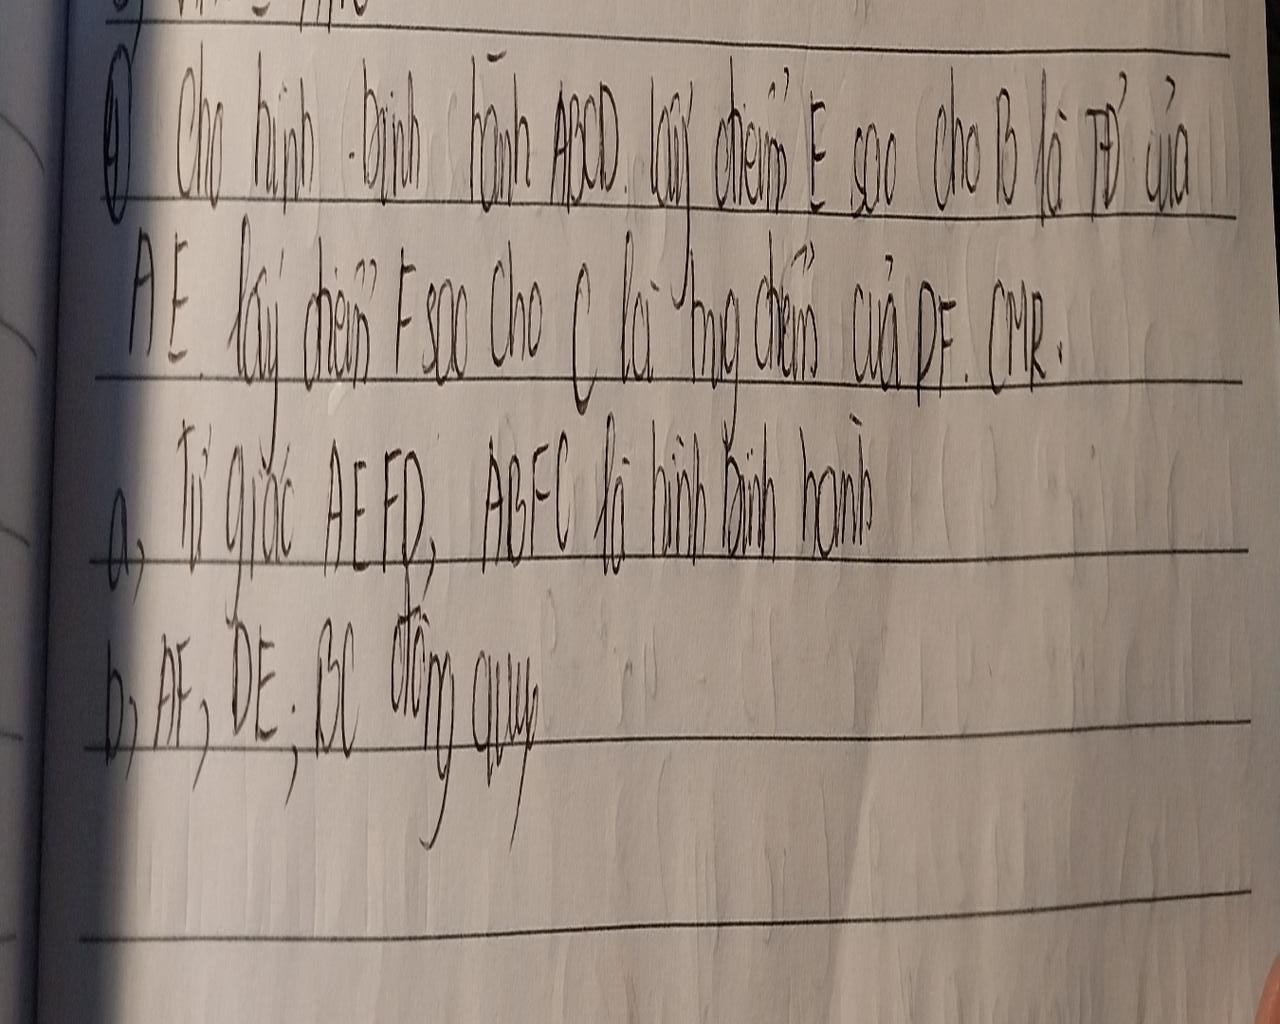 ④ Cho hình bình hành ABCD. lấy điểm E sao cho B là TĐ của
AE. lấy điểm F sao cho C là trung điểm của DF. CMR.
a, Tứ giác AEFD, ABFC là hình bình hành
b, AF, DE; BC đồng quy